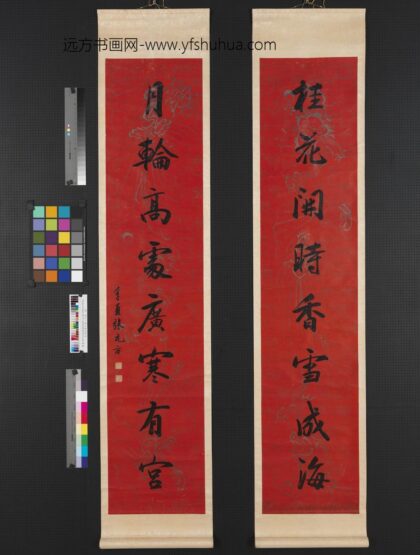 远方书画网-www.yfshuhua.com
桂花開時香雪成海
月輪高處廣寒有宮